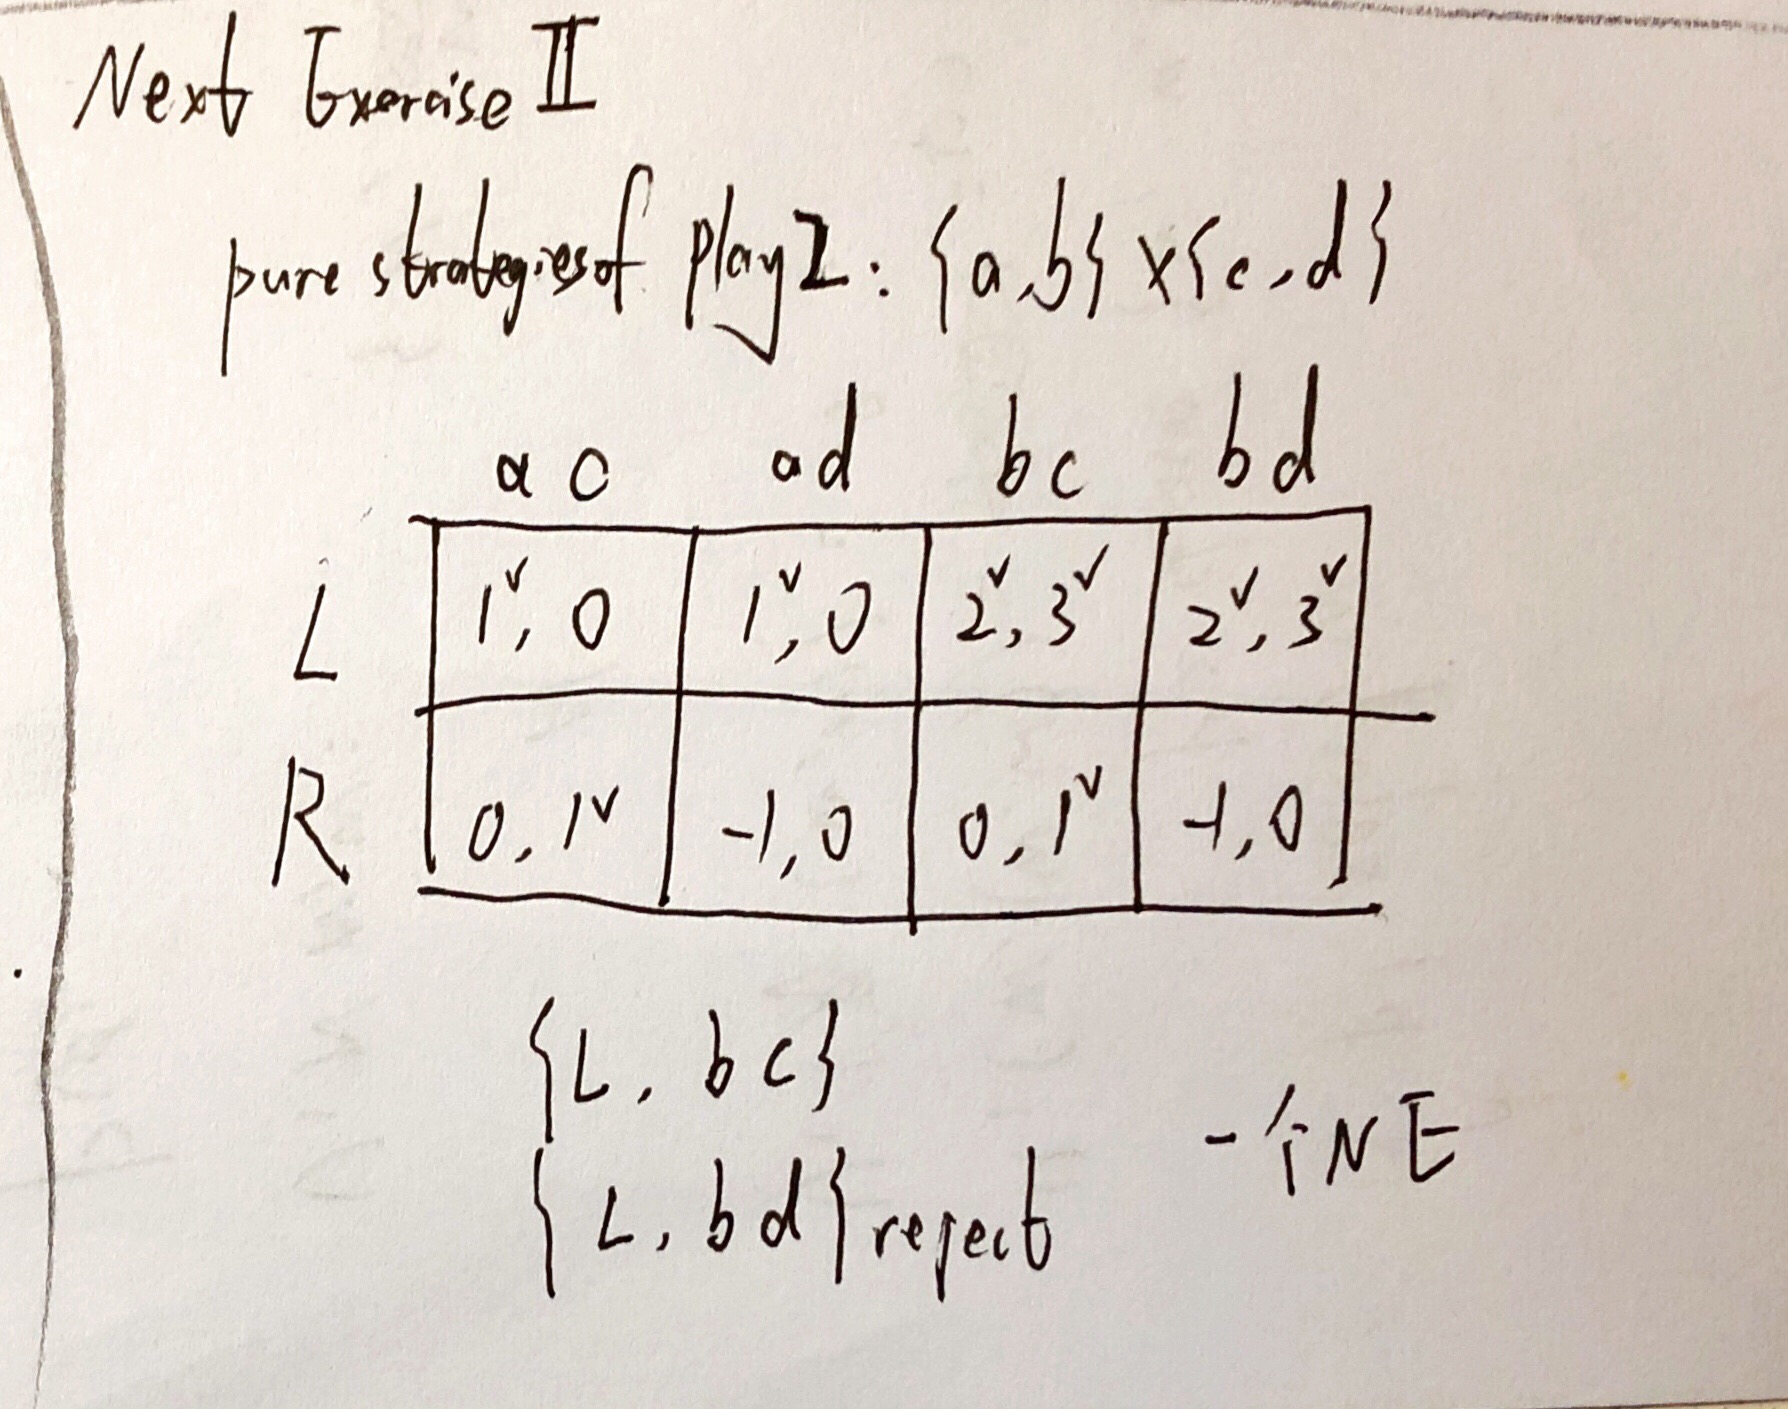 Next Exercise II
pure strategies of play 2: {a,b} x {c,d}
ac ad bc bd
L 1✓, 0 1✓, 0 2✓, 3✓ 2✓, 3✓
R 0, 1✓ -1, 0 0, 1✓ -1, 0
{L, bc}
一个NE
{L, bd} reject